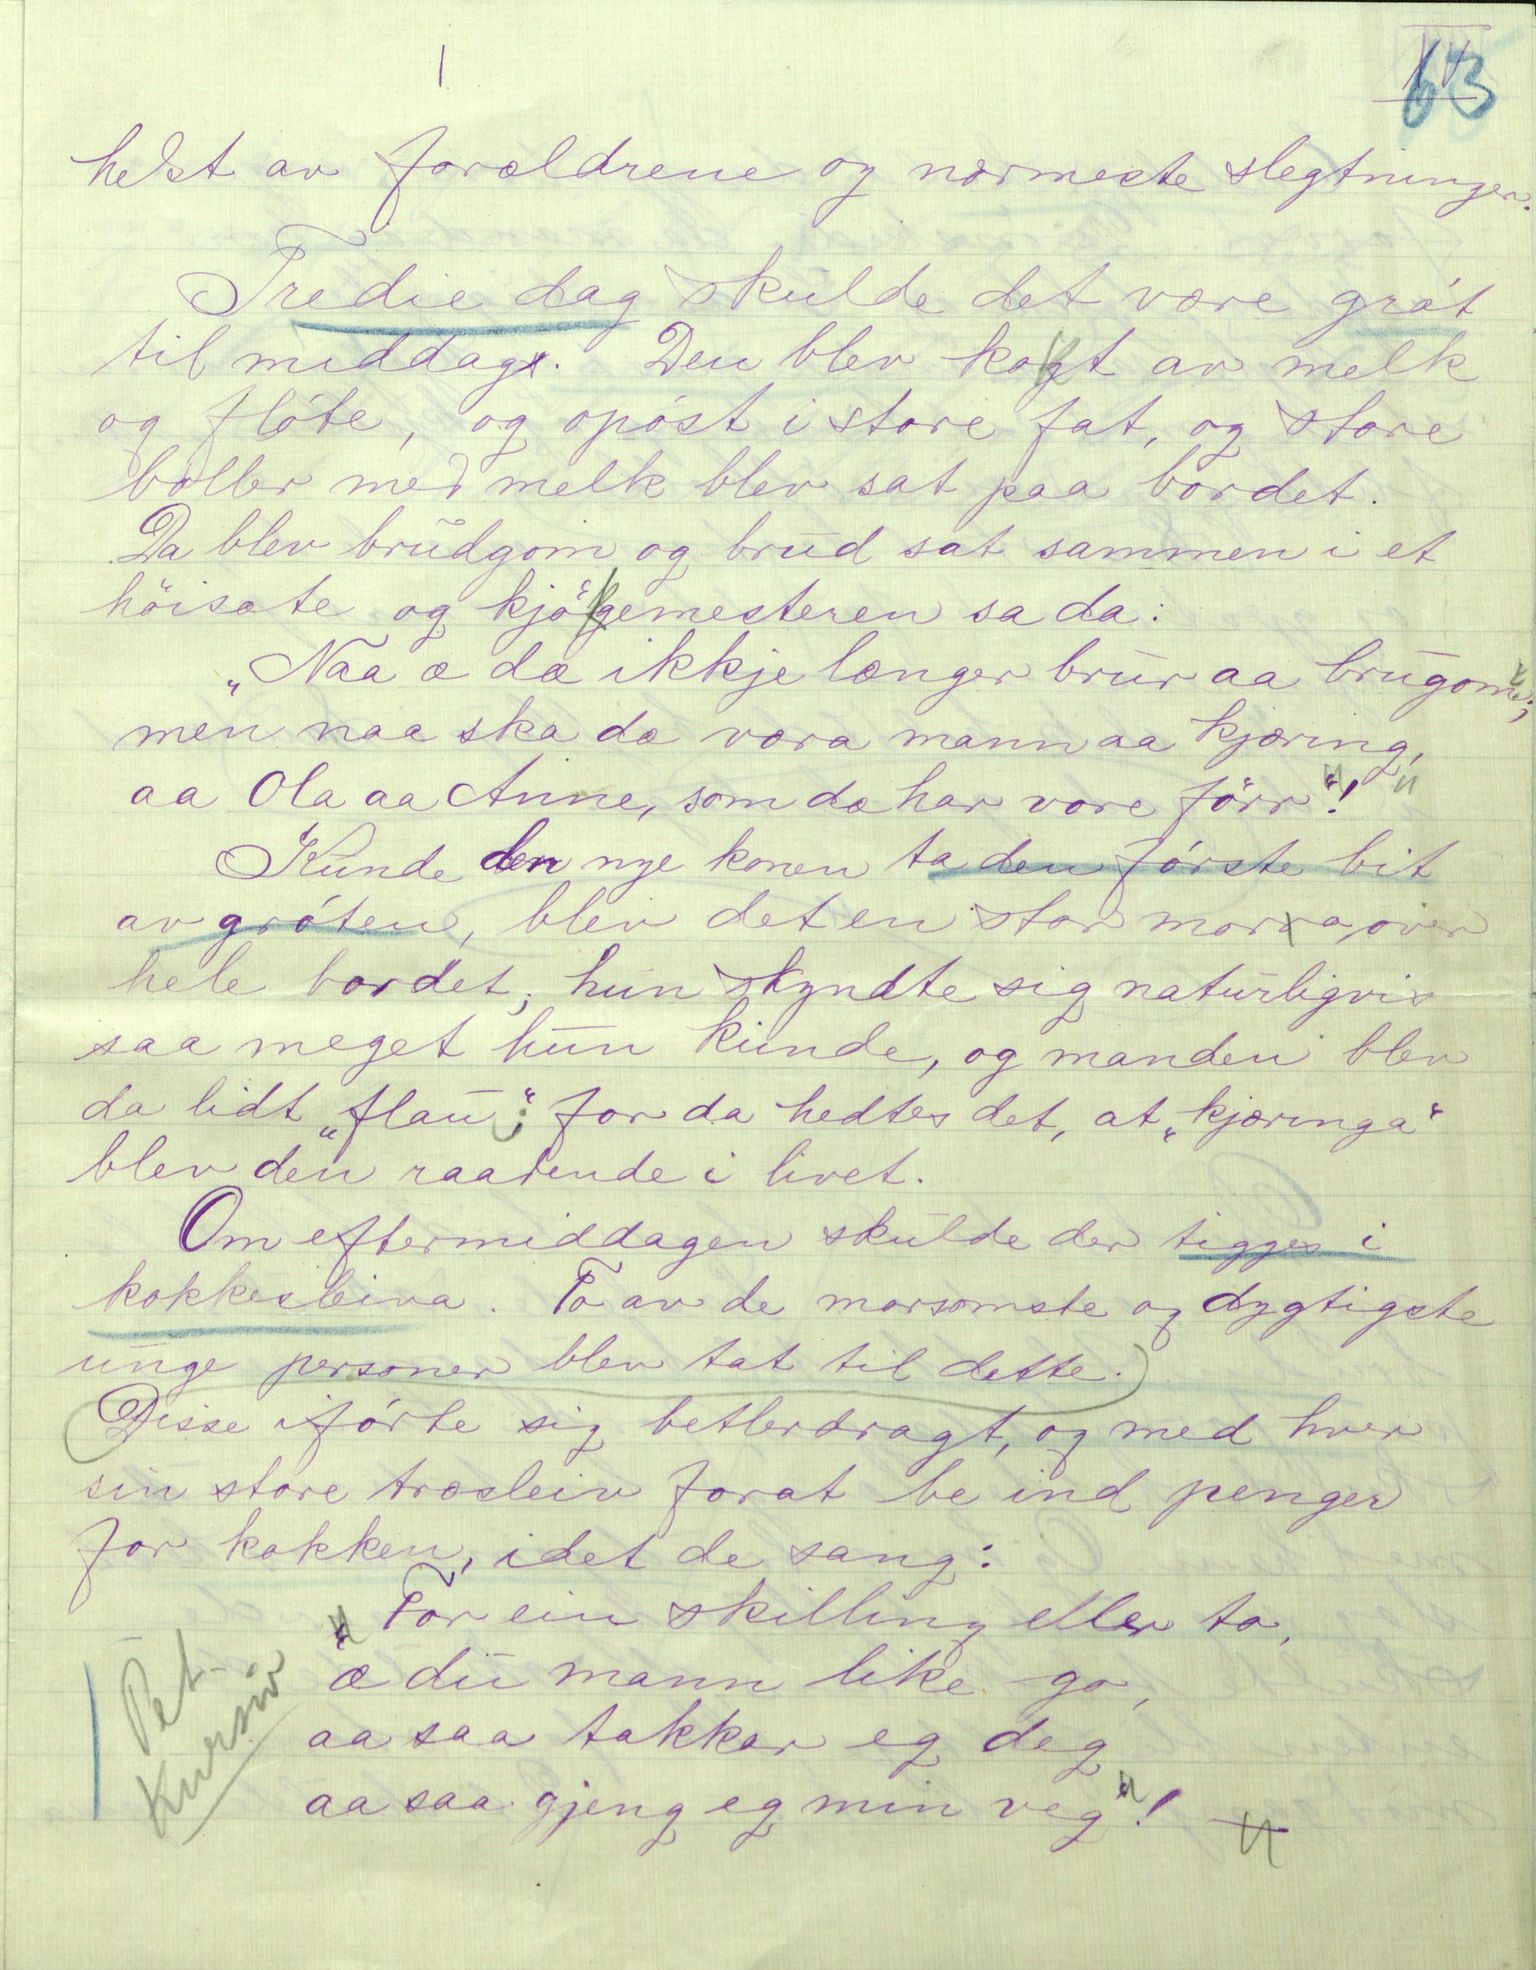 63
helst av forældrene og nærmeste slegtninger.
Tredie dag skulde det være grøt
til middags. Den blev kogt av melk
og fløte, og opøst i store fat, og store
boller med melk blev sat paa bordet.
Da blev brudgom og brud sat sammen i et
høisæte og kjøgemesteren sa da:
„Naa æ dæ ikkje længer brur aa brugom;
men naa ska dæ væra mann aa kjæring,
aa Ola aa Anne, som dæ har vore førr"!
Kunde den nye konen ta den første bit
av grøten, blev det en stor morra over
hele bordet; hun skyndte sig naturligvis
saa meget hun kunde, og manden blev
da lidt „flau"; for da hedtes det, at „kjæringa"
blev den raadende i livet.
Om eftermiddagen skulde der tigges i
kokkesleiva. To av de morsomste og dygtigste
unge personer blev tat til dette.
Disse iførte sig betlerdragt, og med hver
sin store træsleiv forat be ind penger
for kokken, idet de sang:
„For ein skilling eller to,
æ du mann like go,
aa saa takker eg deg
aa saa gjeng eg min veg"!
Pet-
Kursiv